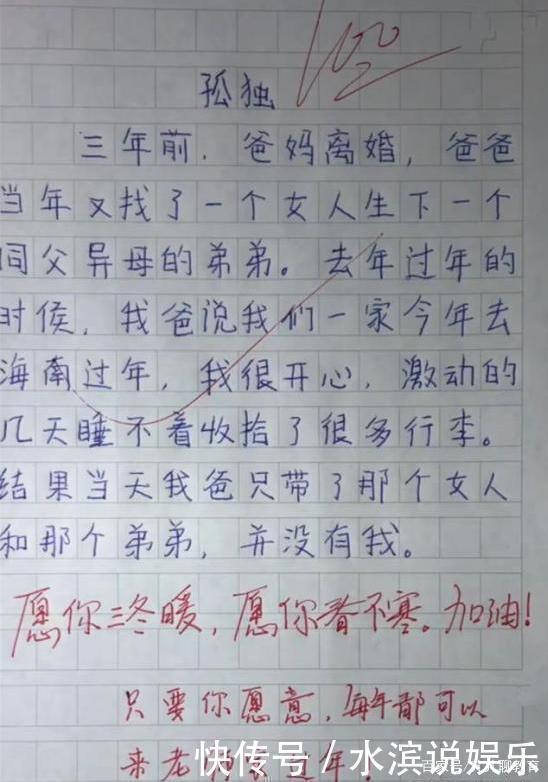 100
孤独
三年前，爸妈离婚，爸爸
当年又找了一个女人生下一个
同父异母的弟弟。去年过年的
时侯，我爸说我们一家今年去
海南过年，我很开心，激动的
几天睡不着收拾了很多行李。
结果当天我爸只带了那个女人
和那个弟弟，并没有我。
愿你三冬暖，愿你春不寒。加油！
只要你愿意，每年都可以
来老
过年
快传号／水滨说娱乐